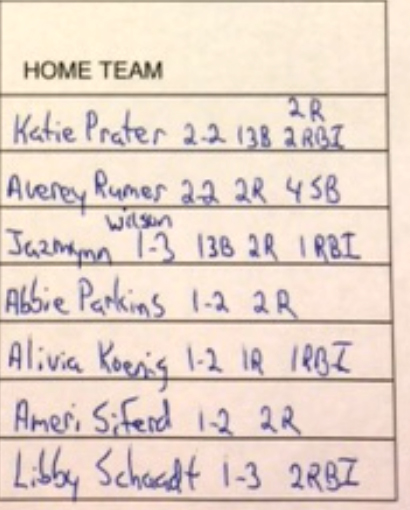 HOME TEAM
Katie Prater 2-2 13B 2R 2RBI
Averey Rumer 2-2 2R 4SB
Jazmynn Wilson 1-3 13B 2R 1RBI
Abbie Parkins 1-2 2R
Alivia Koenig 1-2 1R 1RBI
Ameri Siferd 1-2 2R
Libby Schaadt 1-3 2RBI